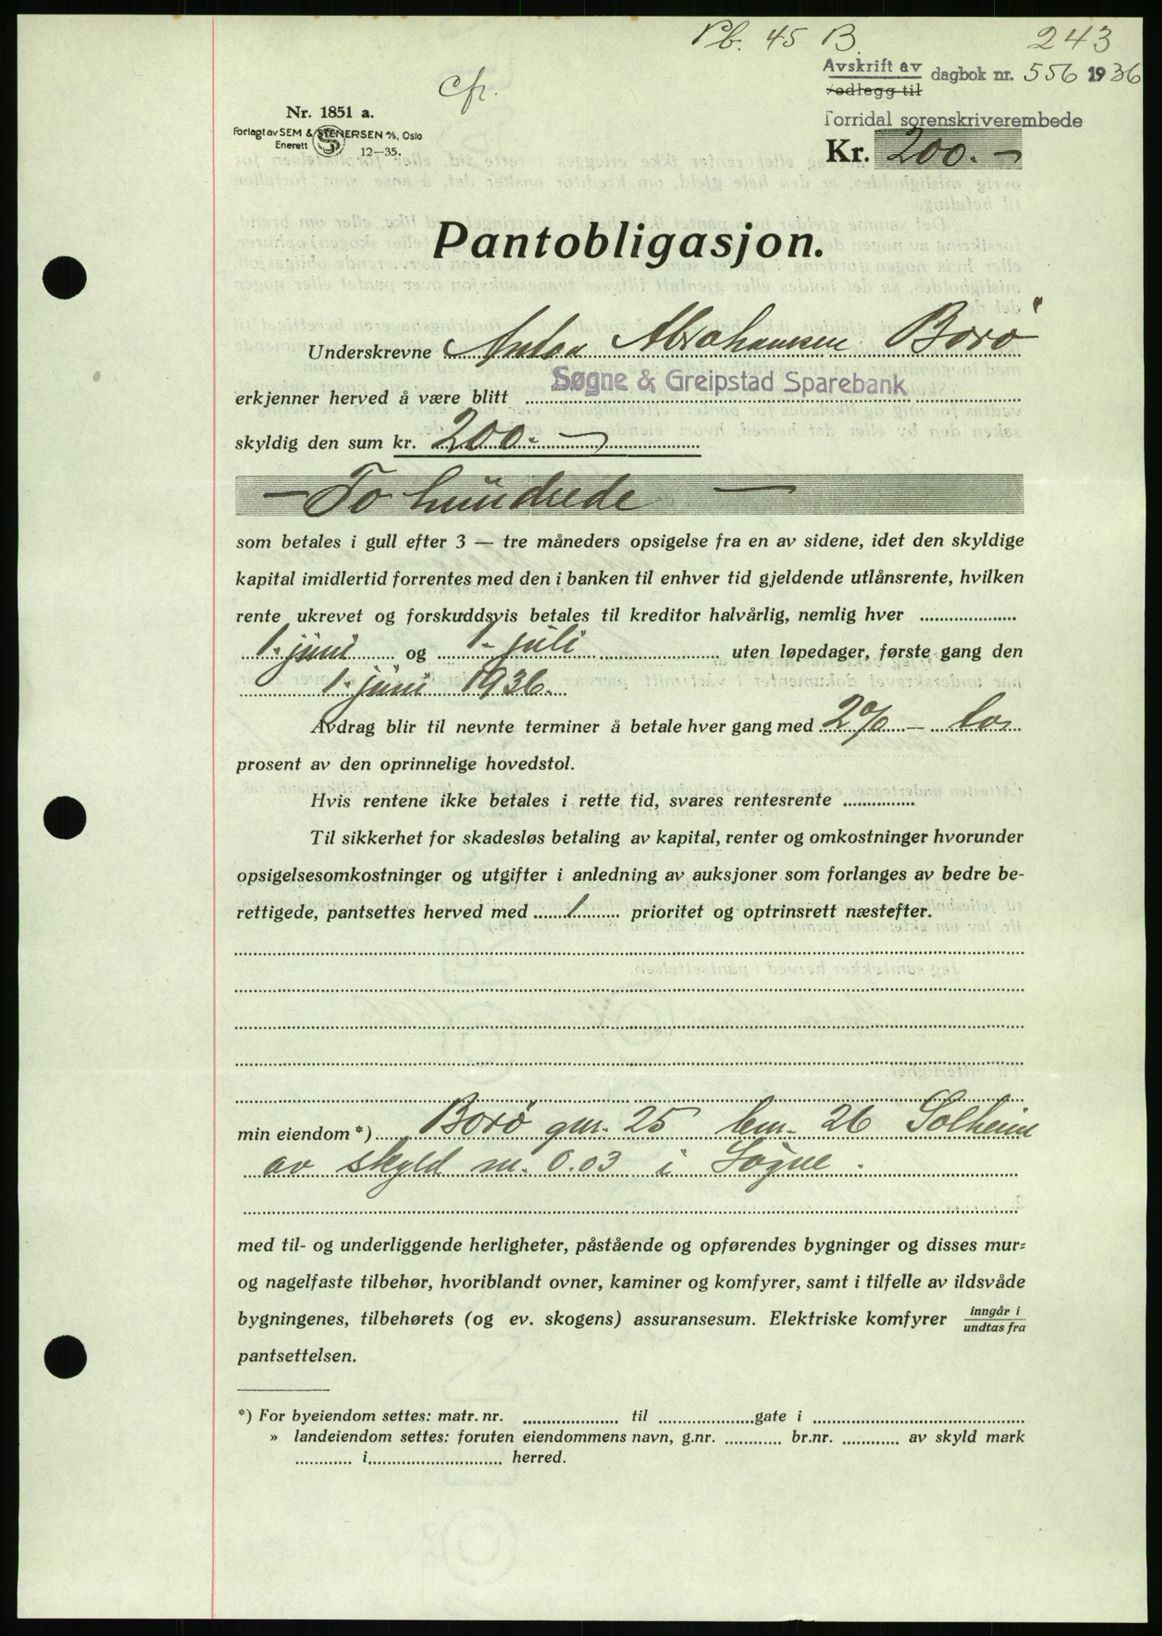 Pb. 45 B. 243
cfr.
Avskrift av
vedlegg til
dagbok nr. 556 1936
Torridal sorenskriverembede
Nr. 1851 a.
Forlagt av SEM & STENERSEN A/S, Oslo
Enerett 12—35.
Kr. 200.—
Pantobligasjon.
Underskrevne Anton Abrahamsen Borø
Søgne & Greipstad Sparebank
erkjenner herved å være blitt
skyldig den sum kr. 200.—
— To hundrede —
som betales i gull efter 3 — tre måneders opsigelse fra en av sidene, idet den skyldige
kapital imidlertid forrentes med den i banken til enhver tid gjeldende utlånsrente, hvilken
rente ukrevet og forskuddsvis betales til kreditor halvårlig, nemlig hver
1. juni og 1. juli uten løpedager, første gang den
1. juni 1936.
Avdrag blir til nevnte terminer å betale hver gang med 2% — to
prosent av den oprinnelige hovedstol.
Hvis rentene ikke betales i rette tid, svares rentesrente
Til sikkerhet for skadesløs betaling av kapital, renter og omkostninger hvorunder
opsigelsesomkostninger og utgifter i anledning av auksjoner som forlanges av bedre be-
rettigede, pantsettes herved med 1 prioritet og optrinsrett næstefter.
min eiendom *) Borø gnr. 25 bnr. 26 Solheim
av skyld m. 0.03 i Søgne.
med til- og underliggende herligheter, påstående og opførendes bygninger og disses mur-
og nagelfaste tilbehør, hvoriblandt ovner, kaminer og komfyrer, samt i tilfelle av ildsvåde
bygningenes, tilbehørets (og ev. skogens) assuransesum. Elektriske komfyrer inngår i
undtas fra
pantsettelsen.
*) For byeiendom settes: matr. nr. til gate i
» landeiendom settes: foruten eiendommens navn, g.nr. br.nr. av skyld mark
i herred.